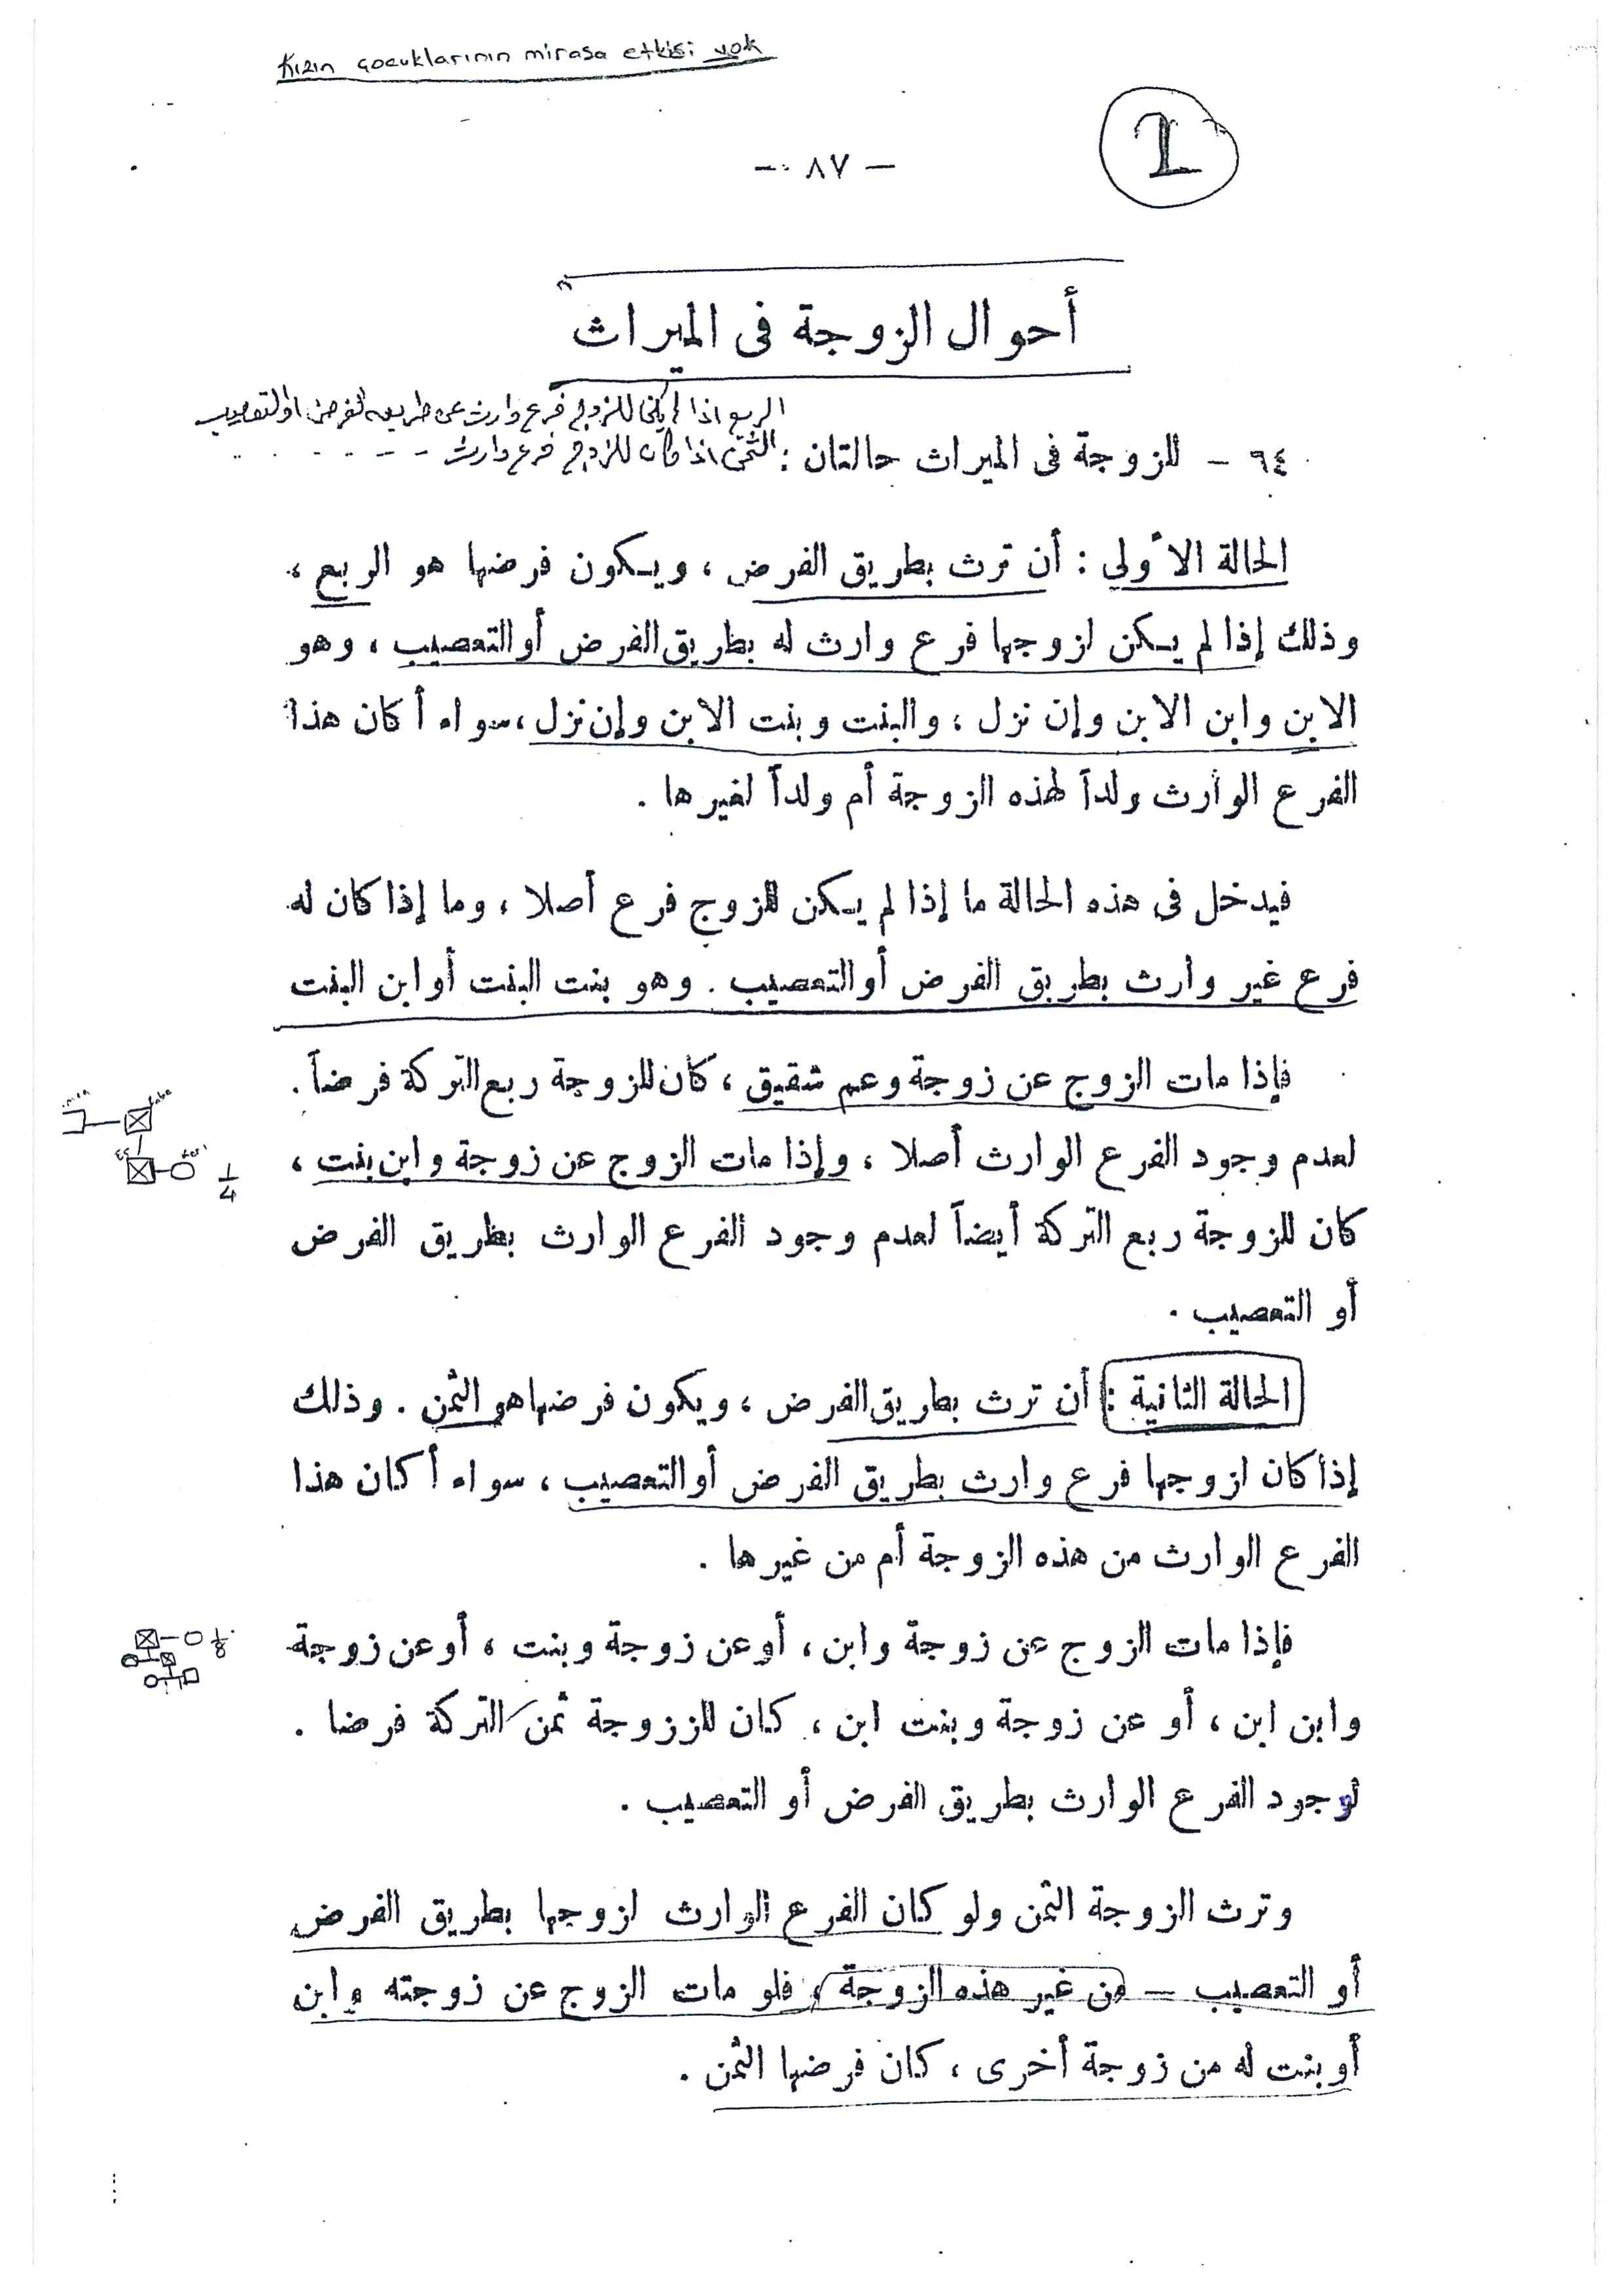 Kızın çocuklarının mirasa etkisi yok
1
— ٨٧ —
أحوال الزوجة فى الميراث
الربع اذا لم يكن للزوج فرع وارث عن طريق الفرض او التعصيب
٦٤ - للزوجة فى الميراث حالتان : الثمن اذا كان للزوج فرع وارث
الحالة الأولى : أن ترث بطريق الفرض ، ويكون فرضها هو الربع ،
وذلك إذا لم يكن لزوجها فرع وارث له بطريق الفرض أو التعصيب ، وهو
الابن وابن الابن وإن نزل ، والبنت وبنت الابن وإن نزل ، سواء أكان هذا
الفرع الوارث ولداً لهذه الزوجة أم ولداً لغيرها .
فيدخل فى هذه الحالة ما إذا لم يكن للزوج فرع أصلا ، وما إذا كان له
فرع غير وارث بطريق الفرض أو التعصيب . وهو بنت البنت أو ابن البنت
فإذا مات الزوج عن زوجة وعم شقيق ، كان للزوجة ربع التركة فرضاً .
لعدم وجود الفرع الوارث أصلا ، وإذا مات الزوج عن زوجة وابن بنت ،
1/4
كان للزوجة ربع التركة أيضاً لعدم وجود الفرع الوارث بطريق الفرض
أو التعصيب .
الحالة الثانية : أن ترث بطريق الفرض ، ويكون فرضها هو الثمن . وذلك
إذا كان لزوجها فرع وارث بطريق الفرض أو التعصيب ، سواء أكان هذا
الفرع الوارث من هذه الزوجة أم من غيرها .
فإذا مات الزوج عن زوجة وابن ، أو عن زوجة وبنت ، أو عن زوجة
1/8
وابن ابن ، أو عن زوجة وبنت ابن ، كان للززوجة ثمن التركة فرضا .
لوجود الفرع الوارث بطريق الفرض أو التعصيب .
وترث الزوجة الثمن ولو كان الفرع الوارث لزوجها بطريق الفرض
أو التعصيب — من غير هذه الزوجة ، فلو مات الزوج عن زوجته وابن
أو بنت له من زوجة أخرى ، كان فرضها الثمن .